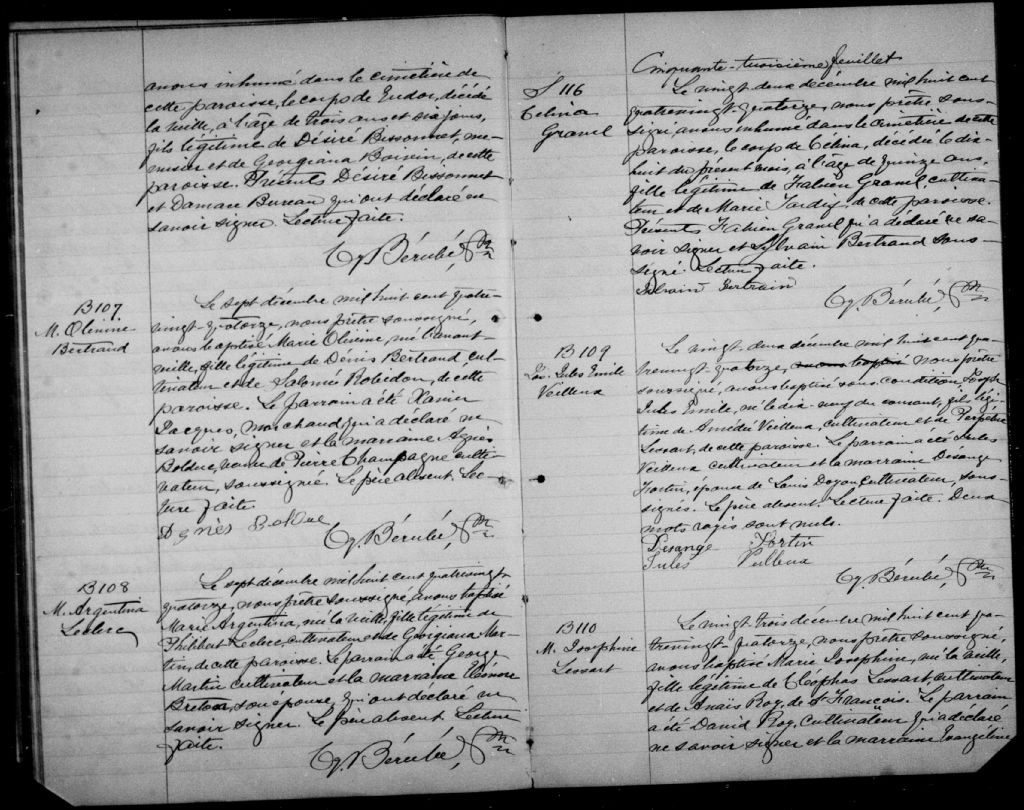 avons inhumé dans le cimetière de
cette paroisse, le corps de Eudor, décédé
la veille, à l'âge de trois ans et six jours,
fils légitime de Désiré Bissonnet, me-
nuisier et de Georgiana Boivin, de cette
paroisse. Présents Désiré Bissonnet
et Damase Bureau qui ont déclaré ne
savoir signer. Lecture faite.
Bérubé, Ptre
B107
M. Olivine
Bertrand
Le sept décembre mil huit cent quatre-
vingt-quatorze, nous prêtre soussigné,
avons baptisé Marie Olivine, née l'avant-
veille, fille légitime de Dénis Bertrand cul-
tivateur et de Salomée Robidon, de cette
paroisse. Le parrain a été Xavier
Jacques, marchand qui a déclaré ne
savoir signer et la marraine Agnès
Bolduc, veuve de Pierre Champagne culti-
vateur, soussignée. Le père absent. Lec-
ture faite.
Agnès Bolduc
Bérubé, Ptre
B108
M. Argentina
Leclerc
Le sept décembre mil huit cent quatrevingt-
quatorze, nous prêtre soussigné, avons baptisé
Marie Argentina, née la veille, fille légitime de
Philibert Leclerc, cultivateur et de Georgiana Mar-
tin, de cette paroisse. Le parrain a été George
Martin cultivateur et la marraine Eléonore
son épouse, qui ont déclaré ne
savoir signer. Le père absent. Lecture
faite.
Bérubé, Ptre
Cinquante-troisième feuillet
S 116
Celina
Gravel
Le vingt deux décembre mil huit cent
quatrevingt-quatorze, nous prêtre sous-
signé, avons inhumé dans le cimetière de cette
paroisse, le corps de Célina, décédée le dix-
huit du présent mois, à l'âge de quinze ans,
fille légitime de Fabien Gravel, cultiva-
teur et de Marie Tardif, de cette paroisse.
Présents Fabien Gravel qui a déclaré ne sa-
voir signer et Sylvain Bertrand sous-
signé. Lecture faite.
Silvain Bertrain
Bérubé, Ptre
B109
Jos. Jules Emile
Veilleux
Le vingt-deux décembre mil huit cent qua-
trevingt-quatorze, nous baptisé nous prêtre
soussigné, avons baptisé sous condition Joseph
Jules Emile, né le dix-neuf du courant, fils légi-
time de Amédée Veilleux, cultivateur et de Perpétue
Lessart, de cette paroisse. Le parrain a été Jules
Veilleux cultivateur et la marraine Desange
Fortin, épouse de Louis Doyon cultivateur, sous-
signés. Le père absent. Lecture faite. Deux
mots rayés sont nuls.
Desange Fortin
Jules Veilleux
Bérubé, Ptre
B110
M. Josephine
Lessart
Le vingt trois décembre mil huit cent qua-
trevingt-quatorze, nous prêtre soussigné,
avons baptisé Marie Josephine, née la veille,
fille légitime de Cléophas Lessart, cultivateur
et de Anaïs Roy, de St François. Le parrain
a été David Roy, cultivateur qui a déclaré
ne savoir signer et la marraine Evangéline